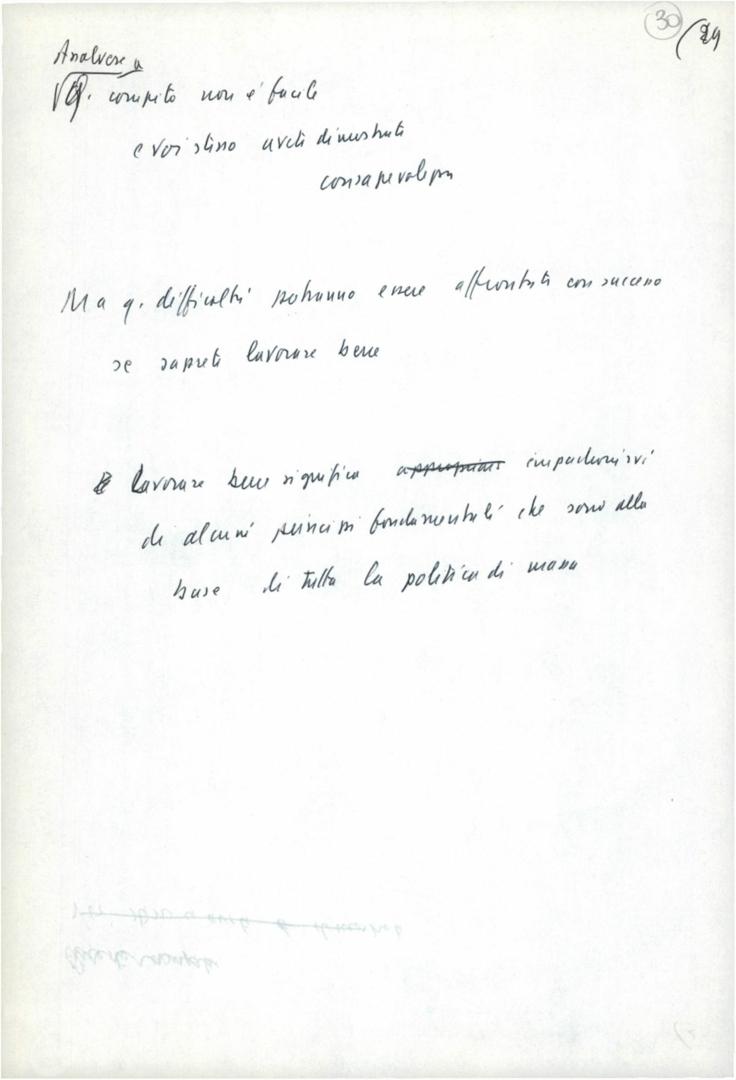 30 (29
q. compito non è facile
e voi stessi avete dimostrato
consapevolezza
Ma q. difficoltà potranno essere affrontate con successo
se saprete lavorare bene
Lavorare bene significa impadronirvi
di alcuni principi fondamentali che sono alla
base di tutta la politica di massa